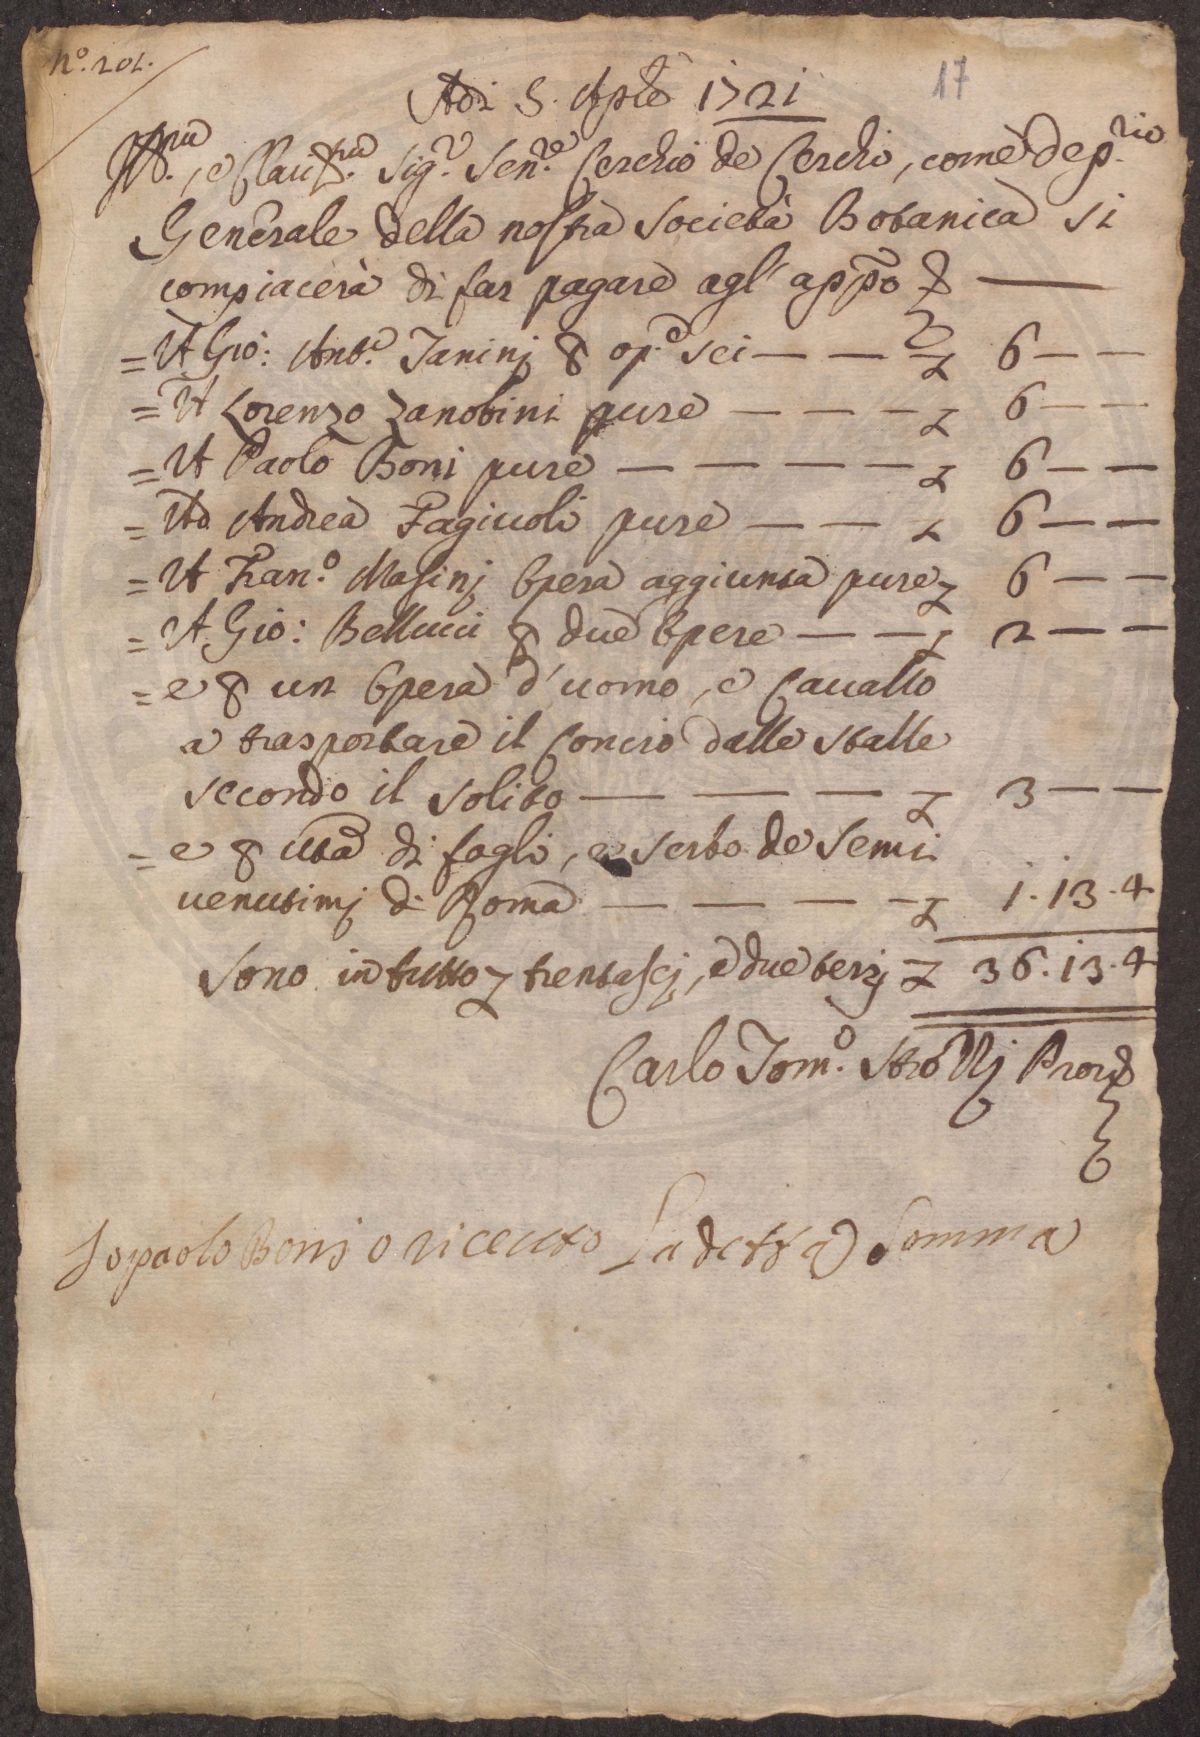 N.º 201.
17
Adi 5. Aple 1721
Ill.mo, e Clariss.mo Sig.r Sen.re Cerchio de Cerchi, come Dep.rio
Generale della nostra Società Botanica si
compiacerà di far pagare agl' appõ
= A Gio: Ant.º Janinj p op.e sei — — 6 — —
= A Lorenzo Zanobini pure — — — 6 — —
= A Paolo Boni pure — — — — 6 — —
= Ad Andrea Fagiuoli pure — — 6 — —
= A Fran.º Masinj Opera aggiunta pure 6 — —
= A Gio: Bellucci p due Opere — — 2 — —
= e p un Opera d'uomo, e Cavallo
a trasportare il Concio dalle stalle
secondo il solito — — — 3 — —
= e p di fogli, e serbo de Semi
venutimj di Roma — — — — 1.13.4
Sono in tutto trentasej, e due terzj 36.13.4
Carlo Tom.º Strozzj Prov.
Io paolo Bonj o riceuto La detta Somma